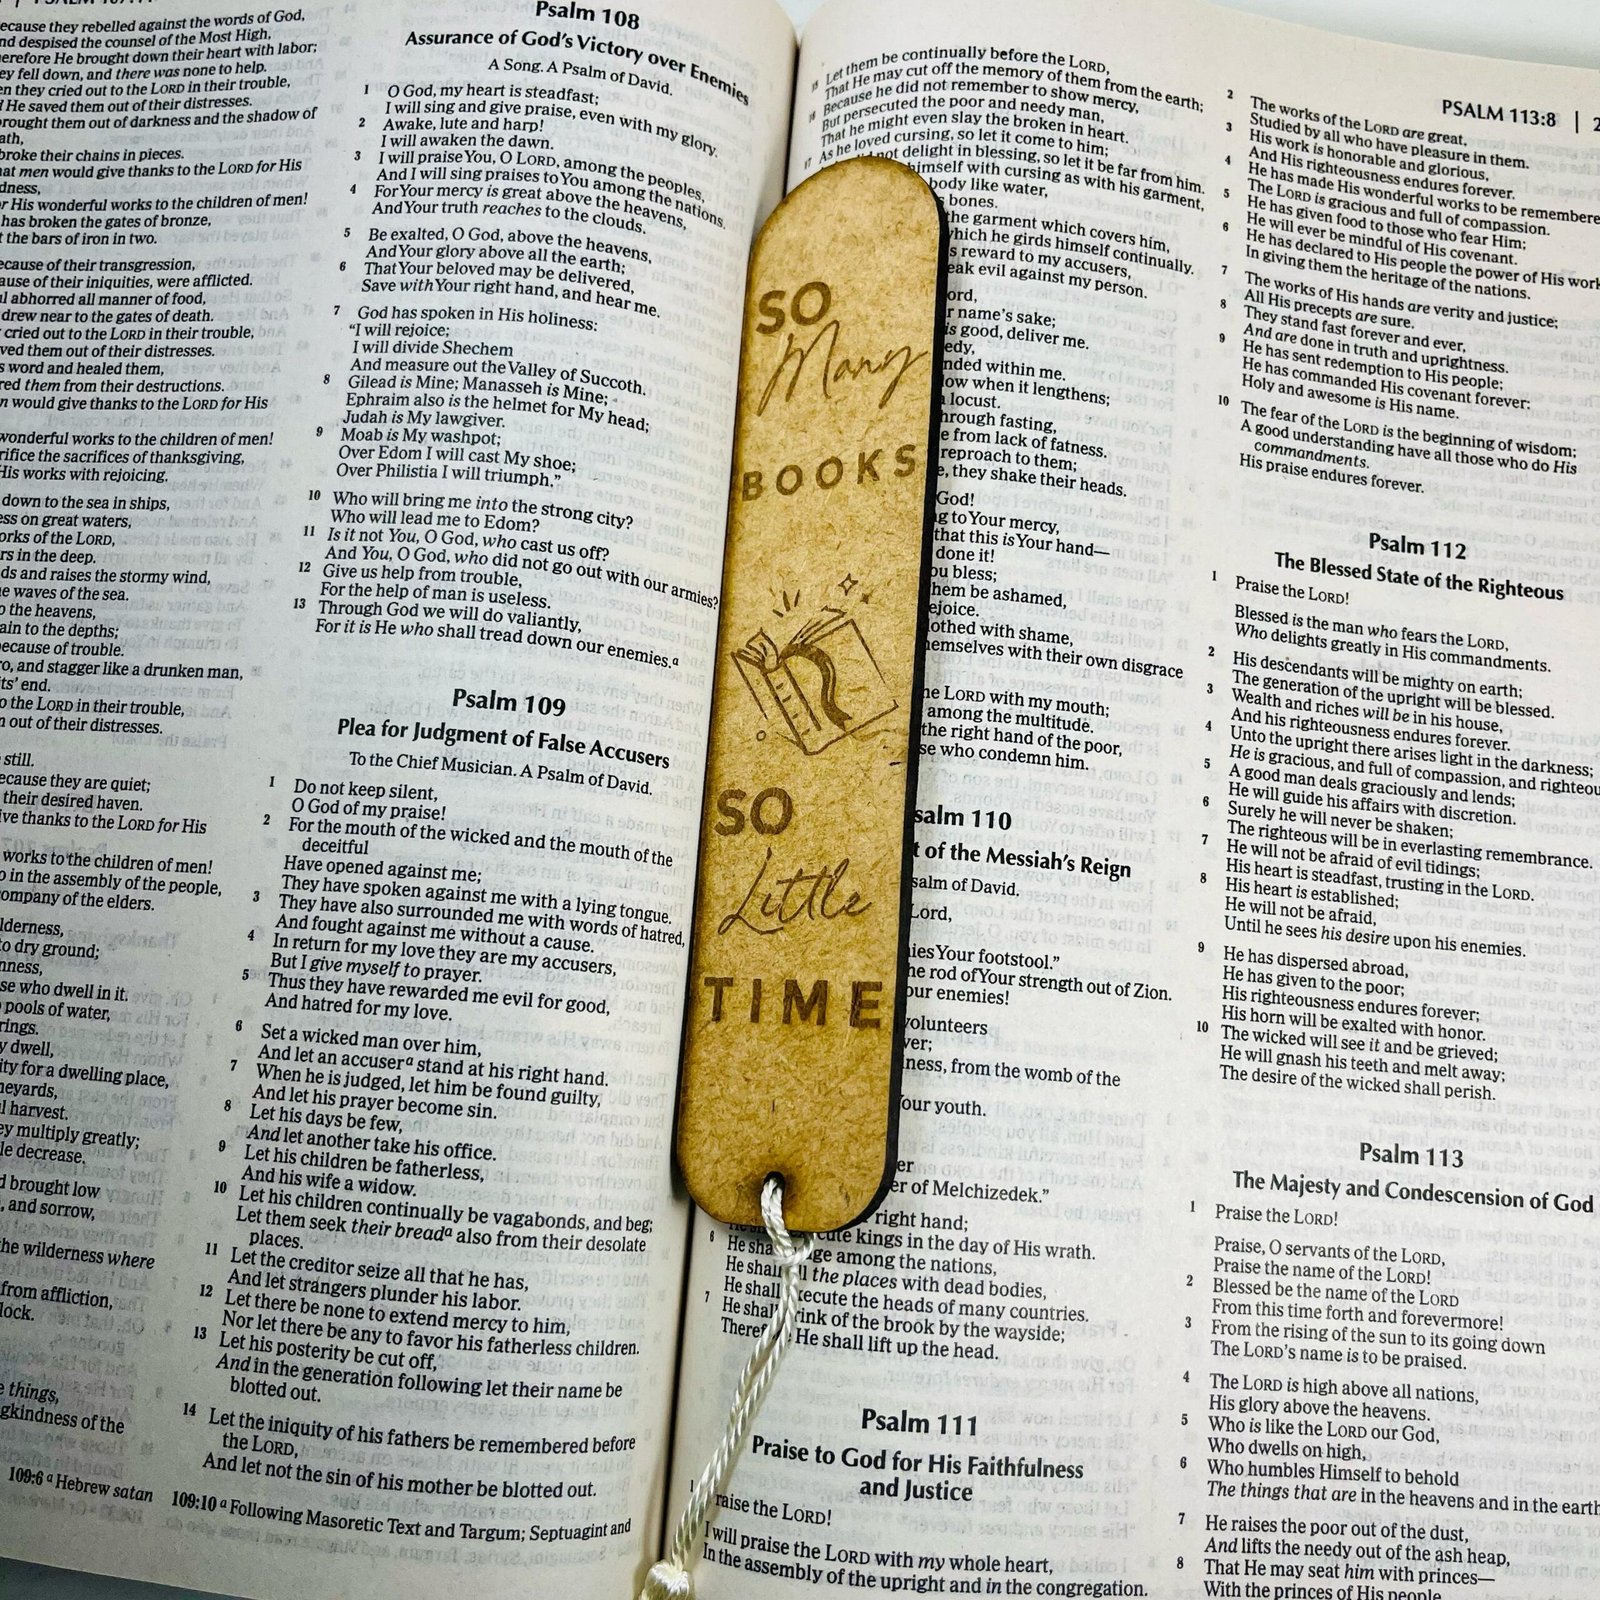 ecause they rebelled against the words of God,
nd despised the counsel of the Most High,
erefore He brought down their heart with labor;
ey fell down, and there was none to help.
en they cried out to the LORD in their trouble,
He saved them out of their distresses.
rought them out of darkness and the shadow of
ath,
broke their chains in pieces.
at men would give thanks to the LORD for His
dness,
r His wonderful works to the children of men!
has broken the gates of bronze,
t the bars of iron in two.
ecause of their transgression,
ause of their iniquities, were afflicted.
ul abhorred all manner of food,
drew near to the gates of death.
cried out to the LORD in their trouble,
ved them out of their distresses.
s word and healed them,
red them from their destructions.
n would give thanks to the LORD for His
wonderful works to the children of men!
rifice the sacrifices of thanksgiving,
His works with rejoicing.
down to the sea in ships,
ess on great waters,
orks of the LORD,
rs in the deep.
ds and raises the stormy wind,
e waves of the sea.
o the heavens,
ain to the depths;
because of trouble.
ro, and stagger like a drunken man,
its' end.
o the LORD in their trouble,
n out of their distresses.
still.
ecause they are quiet;
their desired haven.
ive thanks to the LORD for His
works to the children of men!
o in the assembly of the people,
ompany of the elders.
lderness,
to dry ground;
nness,
se who dwell in it.
pools of water,
rings.
y dwell,
ity for a dwelling place,
neyards,
l harvest.
ey multiply greatly;
le decrease.
d brought low
, and sorrow,
the wilderness where
from affliction,
lock.
e things,
gkindness of the
109:6 a Hebrew satan
Psalm 108
Assurance of God's Victory over Enemies
A Song. A Psalm of David.
1 O God, my heart is steadfast;
I will sing and give praise, even with my glory.
2 Awake, lute and harp!
I will awaken the dawn.
3 I will praise You, O LORD, among the peoples,
And I will sing praises to You among the nations.
4 For Your mercy is great above the heavens,
And Your truth reaches to the clouds.
5 Be exalted, O God, above the heavens,
And Your glory above all the earth;
6 That Your beloved may be delivered,
Save with Your right hand, and hear me.
7 God has spoken in His holiness:
“I will rejoice;
I will divide Shechem
And measure out the Valley of Succoth.
8 Gilead is Mine; Manasseh is Mine;
Ephraim also is the helmet for My head;
Judah is My lawgiver.
9 Moab is My washpot;
Over Edom I will cast My shoe;
Over Philistia I will triumph.”
10 Who will bring me into the strong city?
Who will lead me to Edom?
11 Is it not You, O God, who cast us off?
And You, O God, who did not go out with our armies?
12 Give us help from trouble,
For the help of man is useless.
13 Through God we will do valiantly,
For it is He who shall tread down our enemies.a
Psalm 109
Plea for Judgment of False Accusers
To the Chief Musician. A Psalm of David.
1 Do not keep silent,
O God of my praise!
2 For the mouth of the wicked and the mouth of the
deceitful
Have opened against me;
They have spoken against me with a lying tongue.
3 They have also surrounded me with words of hatred,
And fought against me without a cause.
4 In return for my love they are my accusers,
But I give myself to prayer.
5 Thus they have rewarded me evil for good,
And hatred for my love.
6 Set a wicked man over him,
And let an accuser a stand at his right hand.
7 When he is judged, let him be found guilty,
And let his prayer become sin.
8 Let his days be few,
And let another take his office.
9 Let his children be fatherless,
And his wife a widow.
10 Let his children continually be vagabonds, and beg;
Let them seek their bread a also from their desolate
places.
11 Let the creditor seize all that he has,
And let strangers plunder his labor.
12 Let there be none to extend mercy to him,
Nor let there be any to favor his fatherless children.
13 Let his posterity be cut off,
And in the generation following let their name be
blotted out.
14 Let the iniquity of his fathers be remembered before
the LORD,
And let not the sin of his mother be blotted out.
109:10 a Following Masoretic Text and Targum; Septuagint and
SO
Many
BOOKS
SO
Little
TIME
15 Let them be continually before the LORD,
That He may cut off the memory of them from the earth;
16 Because he did not remember to show mercy,
But persecuted the poor and needy man,
That he might even slay the broken in heart.
17 As he loved cursing, so let it come to him;
not delight in blessing, so let it be far from him.
himself with cursing as with his garment,
body like water,
bones.
the garment which covers him,
which he girds himself continually.
s reward to my accusers,
eak evil against my person.
ord,
r name's sake;
is good, deliver me.
edy,
nded within me.
ow when it lengthens;
locust.
hrough fasting,
e from lack of fatness.
reproach to them;
e, they shake their heads.
God!
g to Your mercy,
that this is Your hand—
done it!
ou bless;
hem be ashamed,
ejoice.
othed with shame,
emselves with their own disgrace
he LORD with my mouth;
among the multitude.
the right hand of the poor,
se who condemn him.
salm 110
t of the Messiah's Reign
salm of David.
Lord,
ies Your footstool.”
he rod of Your strength out of Zion.
our enemies!
volunteers
ver;
ness, from the womb of the
Your youth.
er
er of Melchizedek.”
right hand;
cute kings in the day of His wrath.
6 He sha ge among the nations,
He shall the places with dead bodies,
He shall ecute the heads of many countries.
7 He shal rink of the brook by the wayside;
Theref He shall lift up the head.
Psalm 111
Praise to God for His Faithfulness
and Justice
1 raise the LORD!
I will praise the LORD with my whole heart,
In the assembly of the upright and in the congregation.
PSALM 113:8 | 2
2 The works of the LORD are great,
Studied by all who have pleasure in them.
3 His work is honorable and glorious,
And His righteousness endures forever.
4 He has made His wonderful works to be remembere
The LORD is gracious and full of compassion.
5 He has given food to those who fear Him;
He will ever be mindful of His covenant.
6 He has declared to His people the power of His work
In giving them the heritage of the nations.
7 The works of His hands are verity and justice;
All His precepts are sure.
8 They stand fast forever and ever,
And are done in truth and uprightness.
9 He has sent redemption to His people;
He has commanded His covenant forever:
Holy and awesome is His name.
10 The fear of the LORD is the beginning of wisdom;
A good understanding have all those who do His
commandments.
His praise endures forever.
Psalm 112
The Blessed State of the Righteous
1 Praise the LORD!
Blessed is the man who fears the LORD,
Who delights greatly in His commandments.
2 His descendants will be mighty on earth;
The generation of the upright will be blessed.
3 Wealth and riches will be in his house,
And his righteousness endures forever.
4 Unto the upright there arises light in the darkness;
He is gracious, and full of compassion, and righteou
5 A good man deals graciously and lends;
He will guide his affairs with discretion.
6 Surely he will never be shaken;
The righteous will be in everlasting remembrance.
7 He will not be afraid of evil tidings;
His heart is steadfast, trusting in the LORD.
8 His heart is established;
He will not be afraid,
Until he sees his desire upon his enemies.
9 He has dispersed abroad,
He has given to the poor;
His righteousness endures forever;
His horn will be exalted with honor.
10 The wicked will see it and be grieved;
He will gnash his teeth and melt away;
The desire of the wicked shall perish.
Psalm 113
The Majesty and Condescension of God
1 Praise the LORD!
Praise, O servants of the LORD,
Praise the name of the LORD!
2 Blessed be the name of the LORD
From this time forth and forevermore!
3 From the rising of the sun to its going down
The LORD's name is to be praised.
4 The LORD is high above all nations,
His glory above the heavens.
5 Who is like the LORD our God,
Who dwells on high,
6 Who humbles Himself to behold
The things that are in the heavens and in the earth
7 He raises the poor out of the dust,
And lifts the needy out of the ash heap,
8 That He may seat him with princes—
With the princes of His people